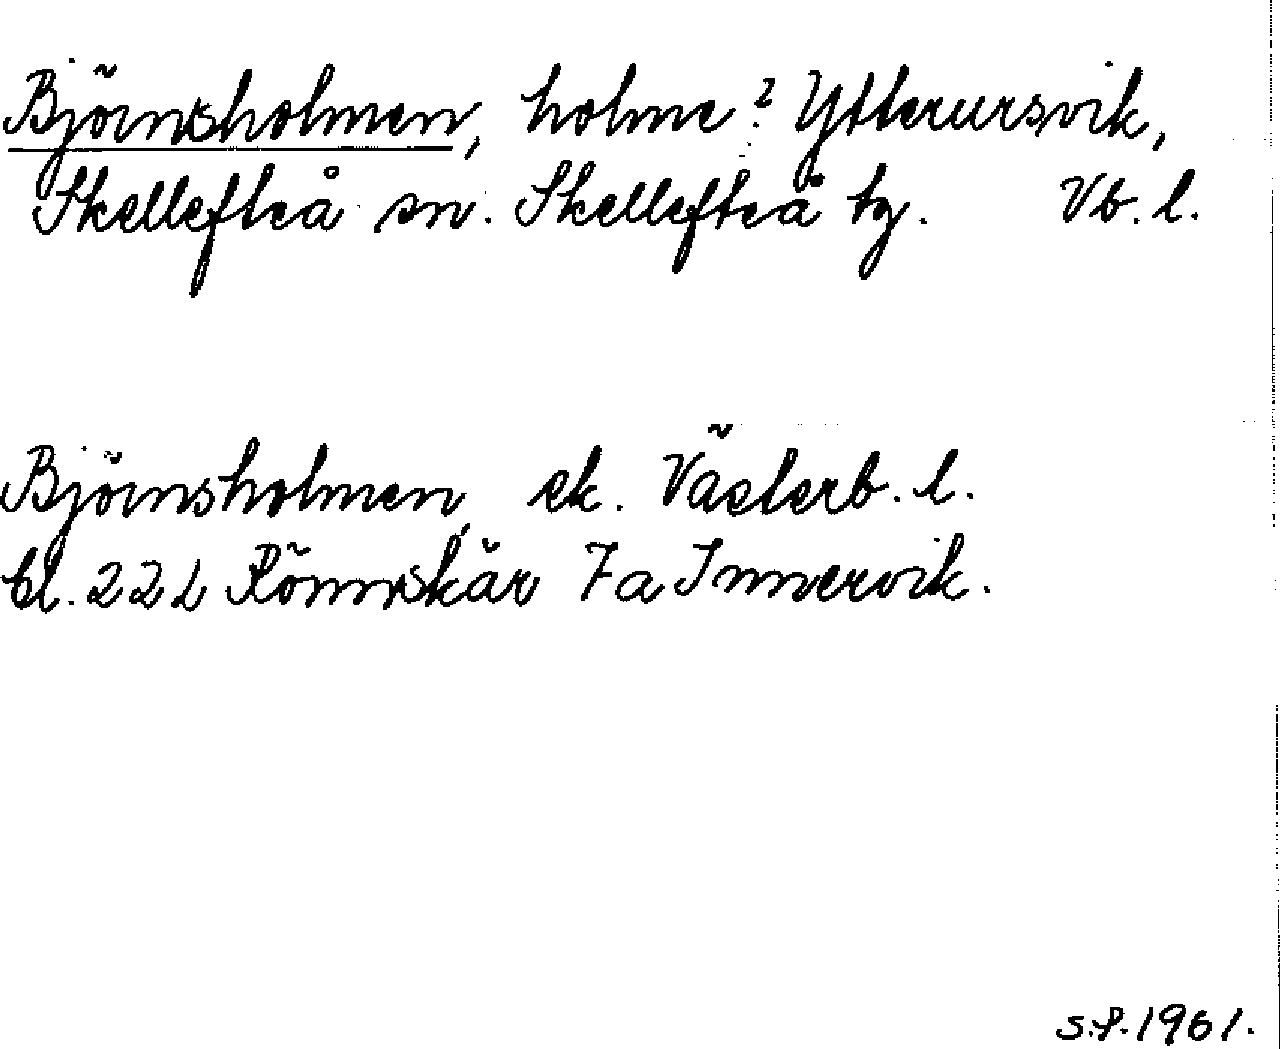 Björnsholmen, holme? Yttterursvik,
Skellefteå sn. Skellefteå tg. Vb. l.
Björnsholmen, ek. Västerb. l.
bl. 22 L Rönnskär 7a Innervik.
S.P. 1961.